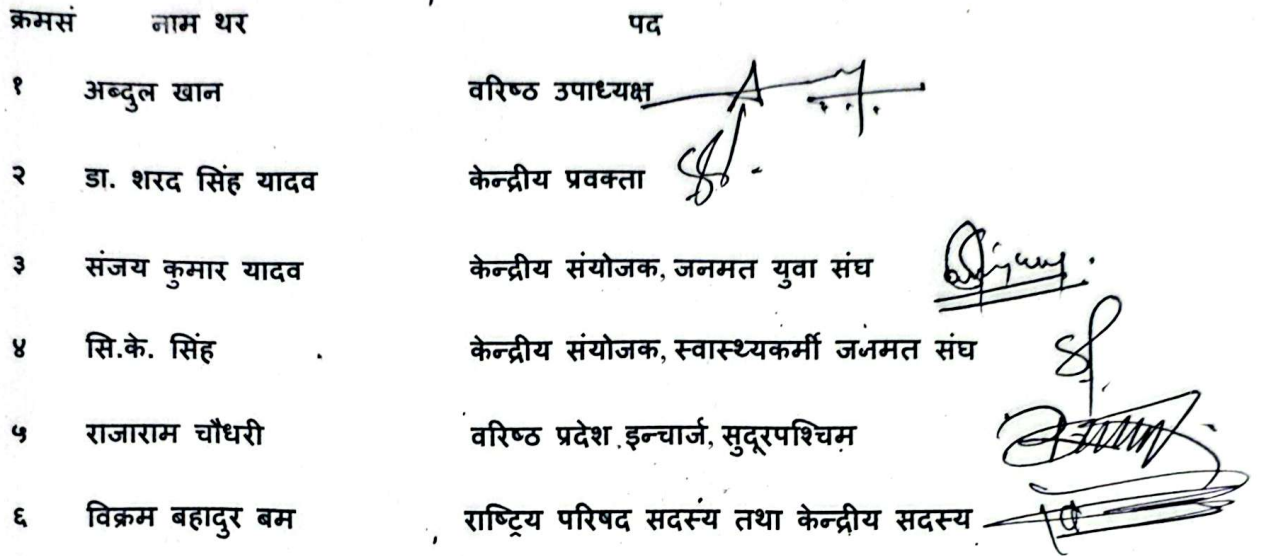 क्रमसं नाम थर पद
१ अब्दुल खान वरिष्ठ उपाध्यक्ष
२ डा. शरद सिंह यादव केन्द्रीय प्रवक्ता
३ संजय कुमार यादव केन्द्रीय संयोजक, जनमत युवा संघ
४ सि.के. सिंह केन्द्रीय संयोजक, स्वास्थ्यकर्मी जनमत संघ
५ राजाराम चौधरी वरिष्ठ प्रदेश इन्चार्ज, सुदूरपश्चिम
६ विक्रम बहादुर बम राष्ट्रिय परिषद सदस्य तथा केन्द्रीय सदस्य